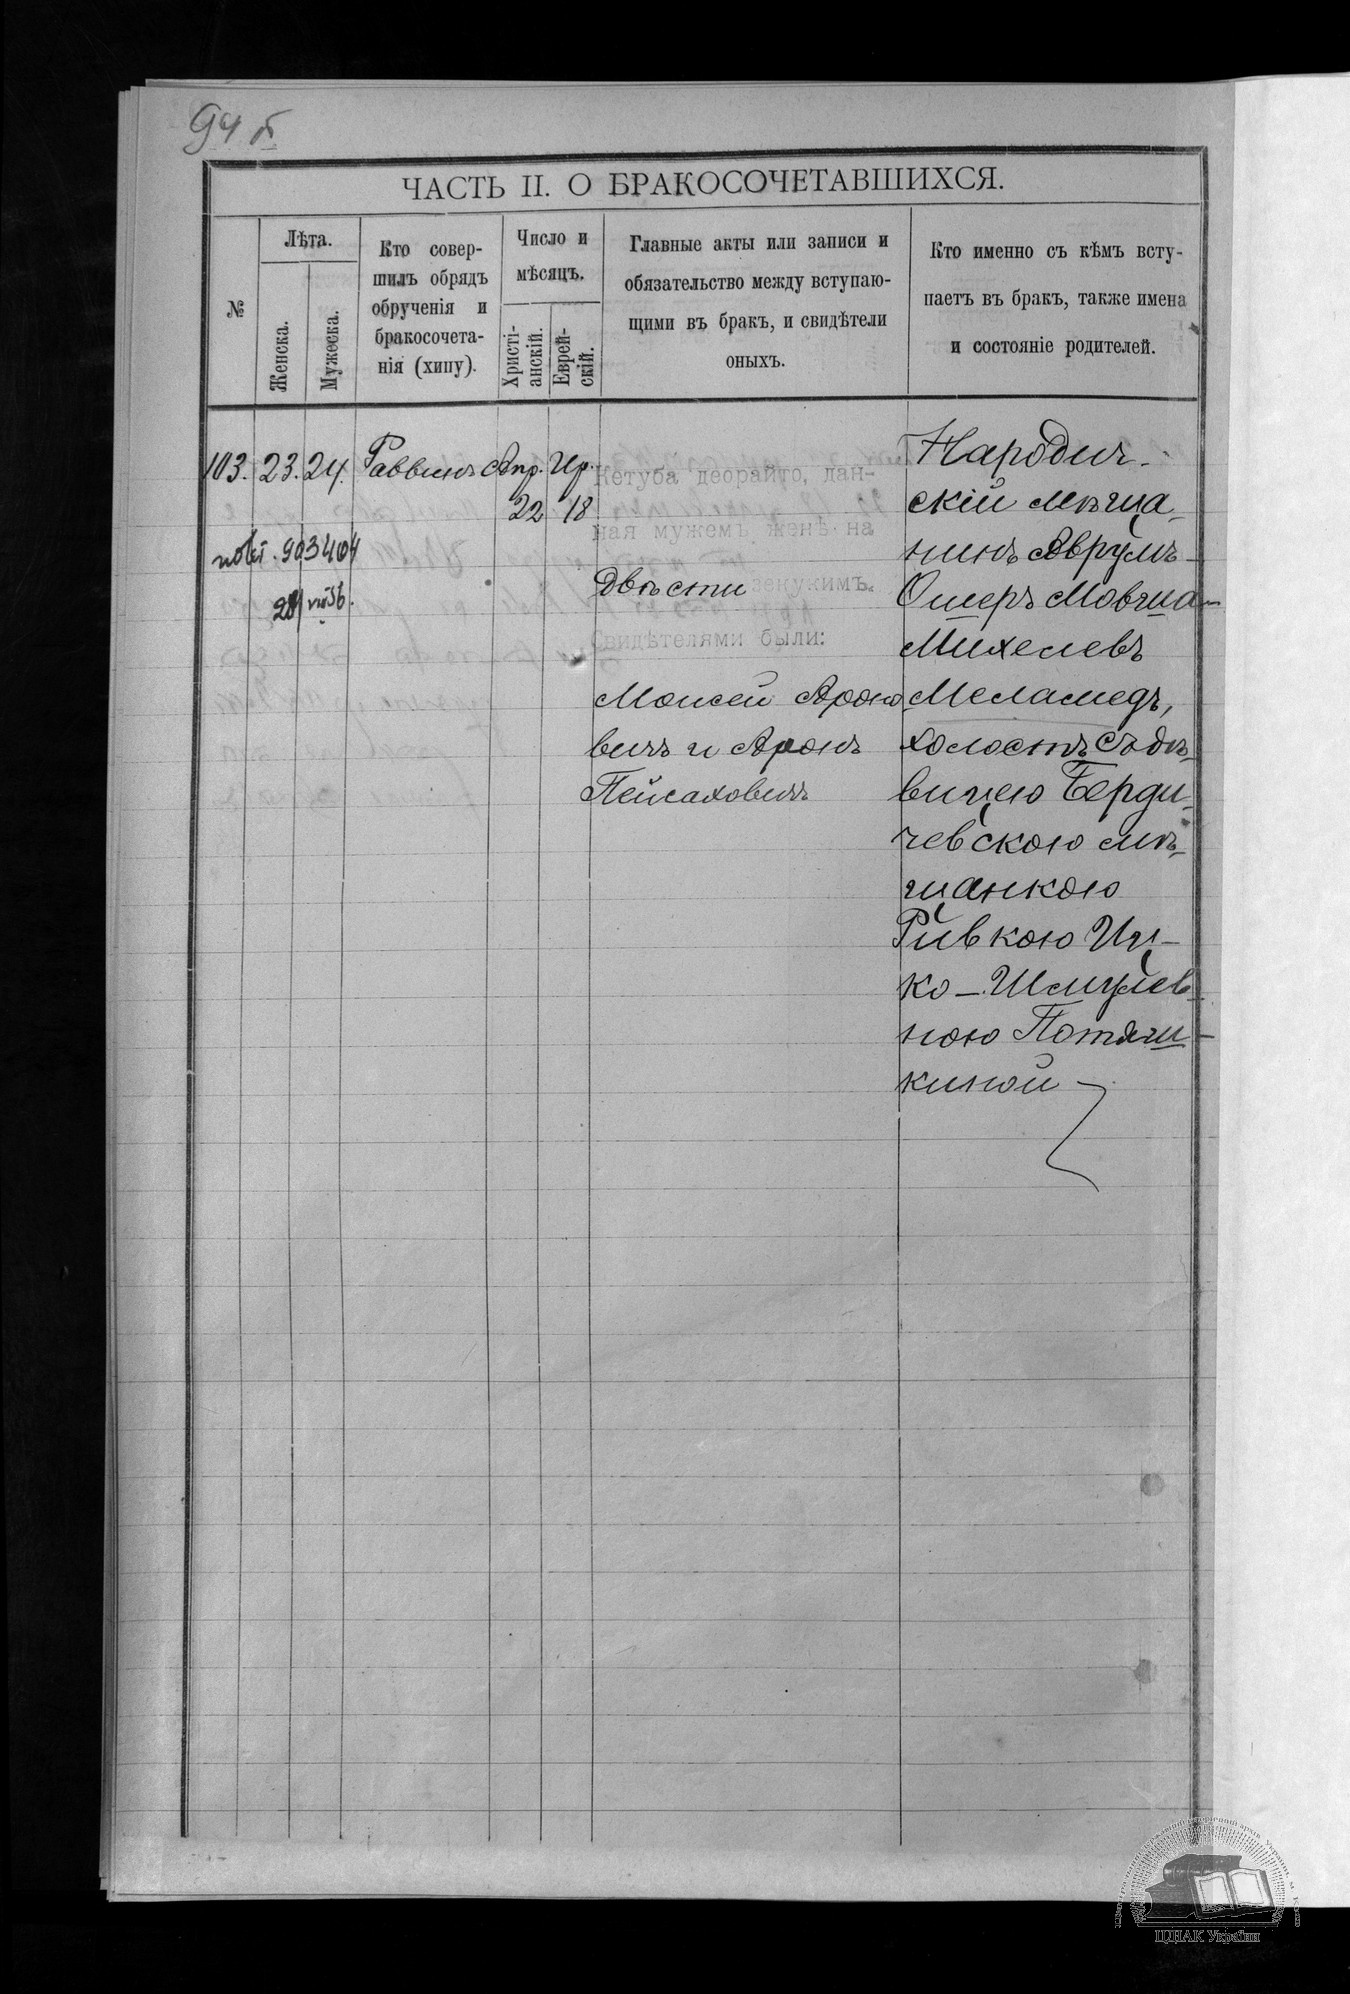 94 б
ЧАСТЬ II. О БРАКОСОЧЕТАВШИХСЯ.
№
Лѣта.
Женска.
Мужеска.
Кто совер-
шилъ обрядъ
обрученія и
бракосочета-
нія (хипу).
Число и
мѣсяцъ.
Христі-
анскій.
Еврей-
скій.
Главные акты или записи и
обязательство между вступаю-
щими въ бракъ, и свидѣтели
оныхъ.
Кто именно съ кѣмъ всту-
паетъ въ бракъ, также имена
и состояніе родителей.
103. 23. 24. Раввинъ Апр. Ир.
22 18
903404
28/VII 56.
Кетуба деорайто, дан-
ная мужемъ женѣ на
Двѣсти зекукимъ.
Свидѣтелями были:
Моисей Ароно
вичъ и Аронъ
Пейсаховичъ
Народич-
скій мѣща-
нинъ Аврумъ-
Ошеръ Мовша-
Михелевъ
Меламедъ,
холостъ съ дѣ-
вицею Берди-
чевскою мѣ-
щанкою
Ривкою Иц-
ко-Шмулев-
ною Потяш-
киной
ЦДІАК України